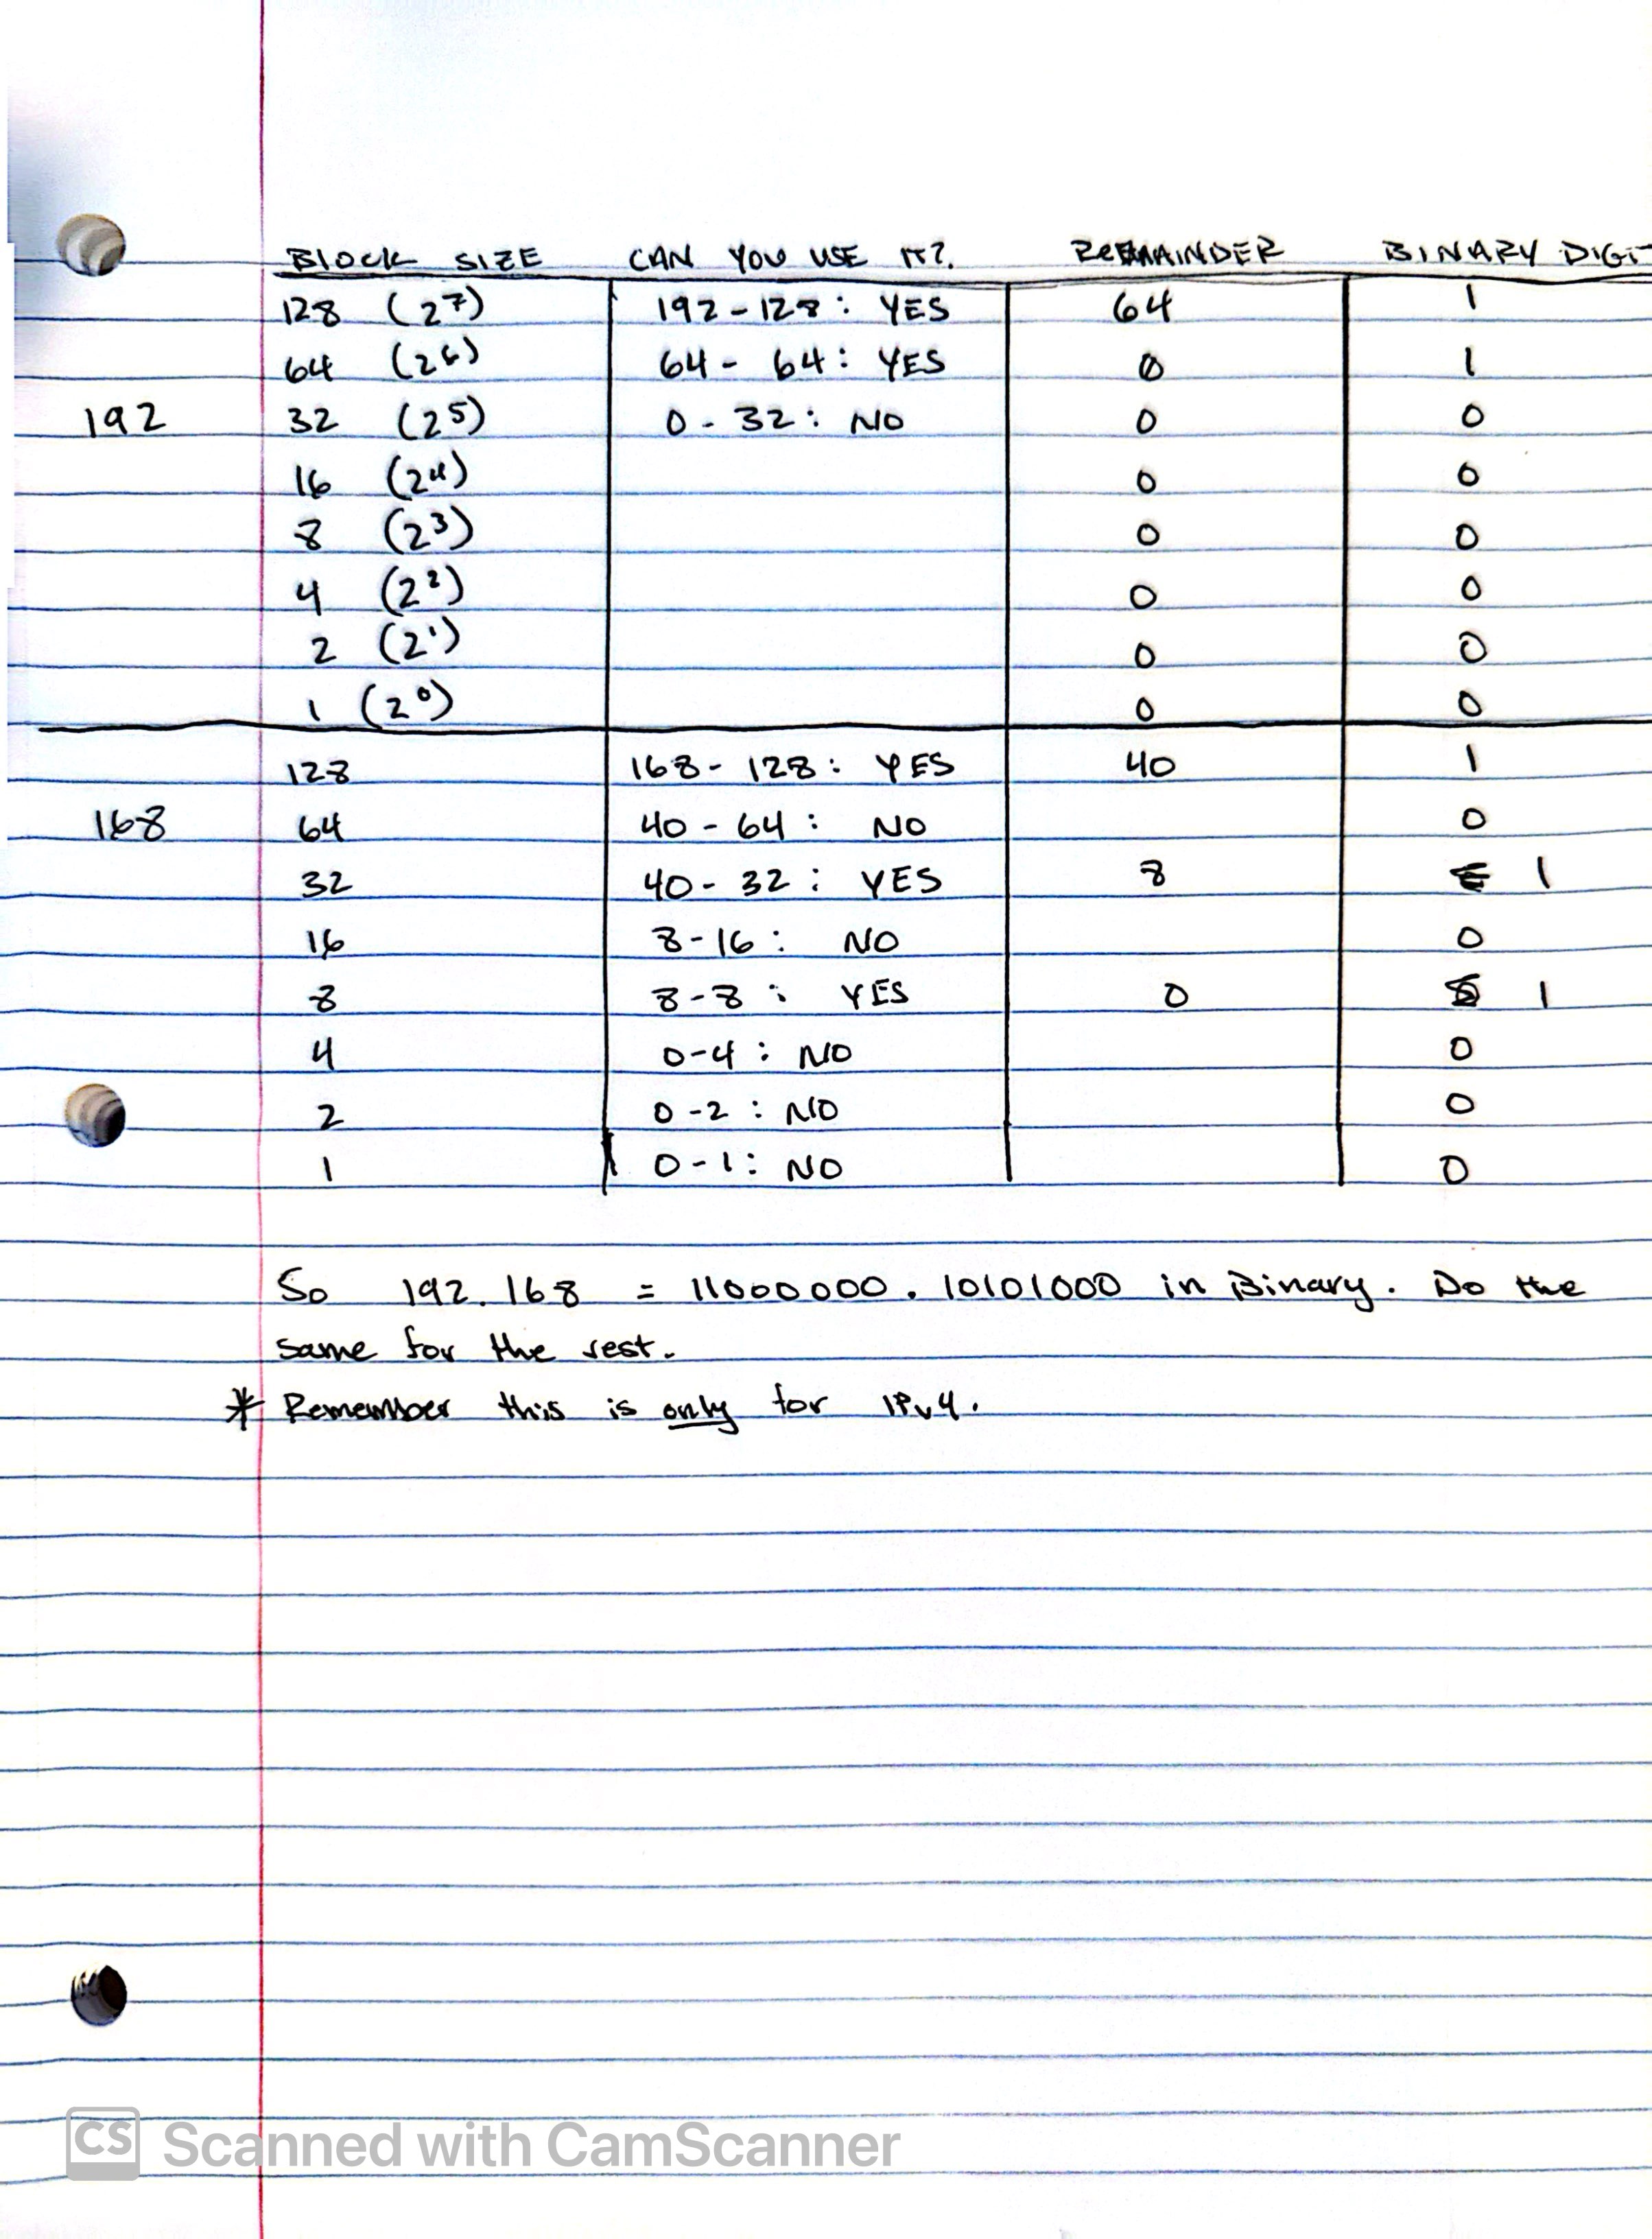 BLOCK SIZE CAN YOU USE IT? REMAINDER BINARY DIGIT
128 (2⁷) 192-128: YES 64 1
64 (2⁶) 64- 64: YES 0 1
192 32 (2⁵) 0-32: NO 0 0
16 (2⁴) 0 0
8 (2³) 0 0
4 (2²) 0 0
2 (2¹) 0 0
1 (2⁰) 0 0
128 168-128: YES 40 1
168 64 40-64: NO 0
32 40-32: YES 8 1
16 8-16: NO 0
8 8-8: YES 0 1
4 0-4: NO 0
2 0-2: NO 0
1 0-1: NO 0
So 192.168 = 11000000.10101000 in Binary. Do the
same for the rest.
* Remember this is only for IPv4.
CS Scanned with CamScanner